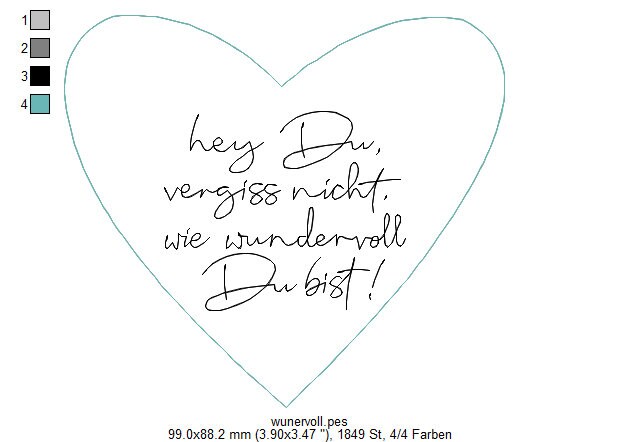 1
2
3
4
hey Du,
vergiss nicht,
wie wundervoll
Du bist!
wunervoll.pes
99.0x88.2 mm (3.90x3.47 "), 1849 St, 4/4 Farben